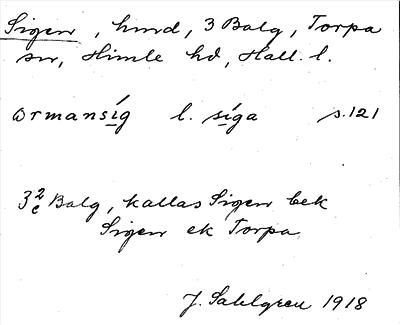 Sigen, hmd, 3 Balg, Torpa
sn, Himle hd, Hall. l.
ormansíg l. síga s.121
3 2/c Balg, kallas Sigen bek
Sigen ek Torpa
J. Sahlgren 1918